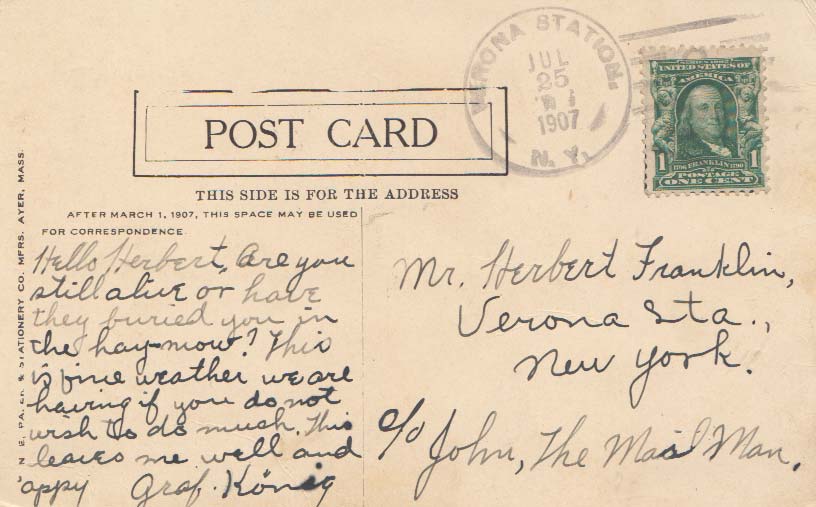 VERONA STATION.
JUL
25
1907
N. Y.
SERIES 1902
UNITED STATES OF
AMERICA
1 1706 FRANKLIN 1790 1
POSTAGE
ONE CENT
POST CARD
THIS SIDE IS FOR THE ADDRESS
AFTER MARCH 1, 1907, THIS SPACE MAY BE USED
FOR CORRESPONDENCE
Hello Herbert, Are you
still alive or have
they buried you in
the hay-mow? This
is fine weather we are
having if you do not
wish to do much. This
leaves me well and
'appy Graf. König
Mr. Herbert Franklin,
Verona Sta.,
New York.
c/o John, The Mail Man.
N. E. PAPER & STATIONERY CO. MFRS. AYER, MASS.